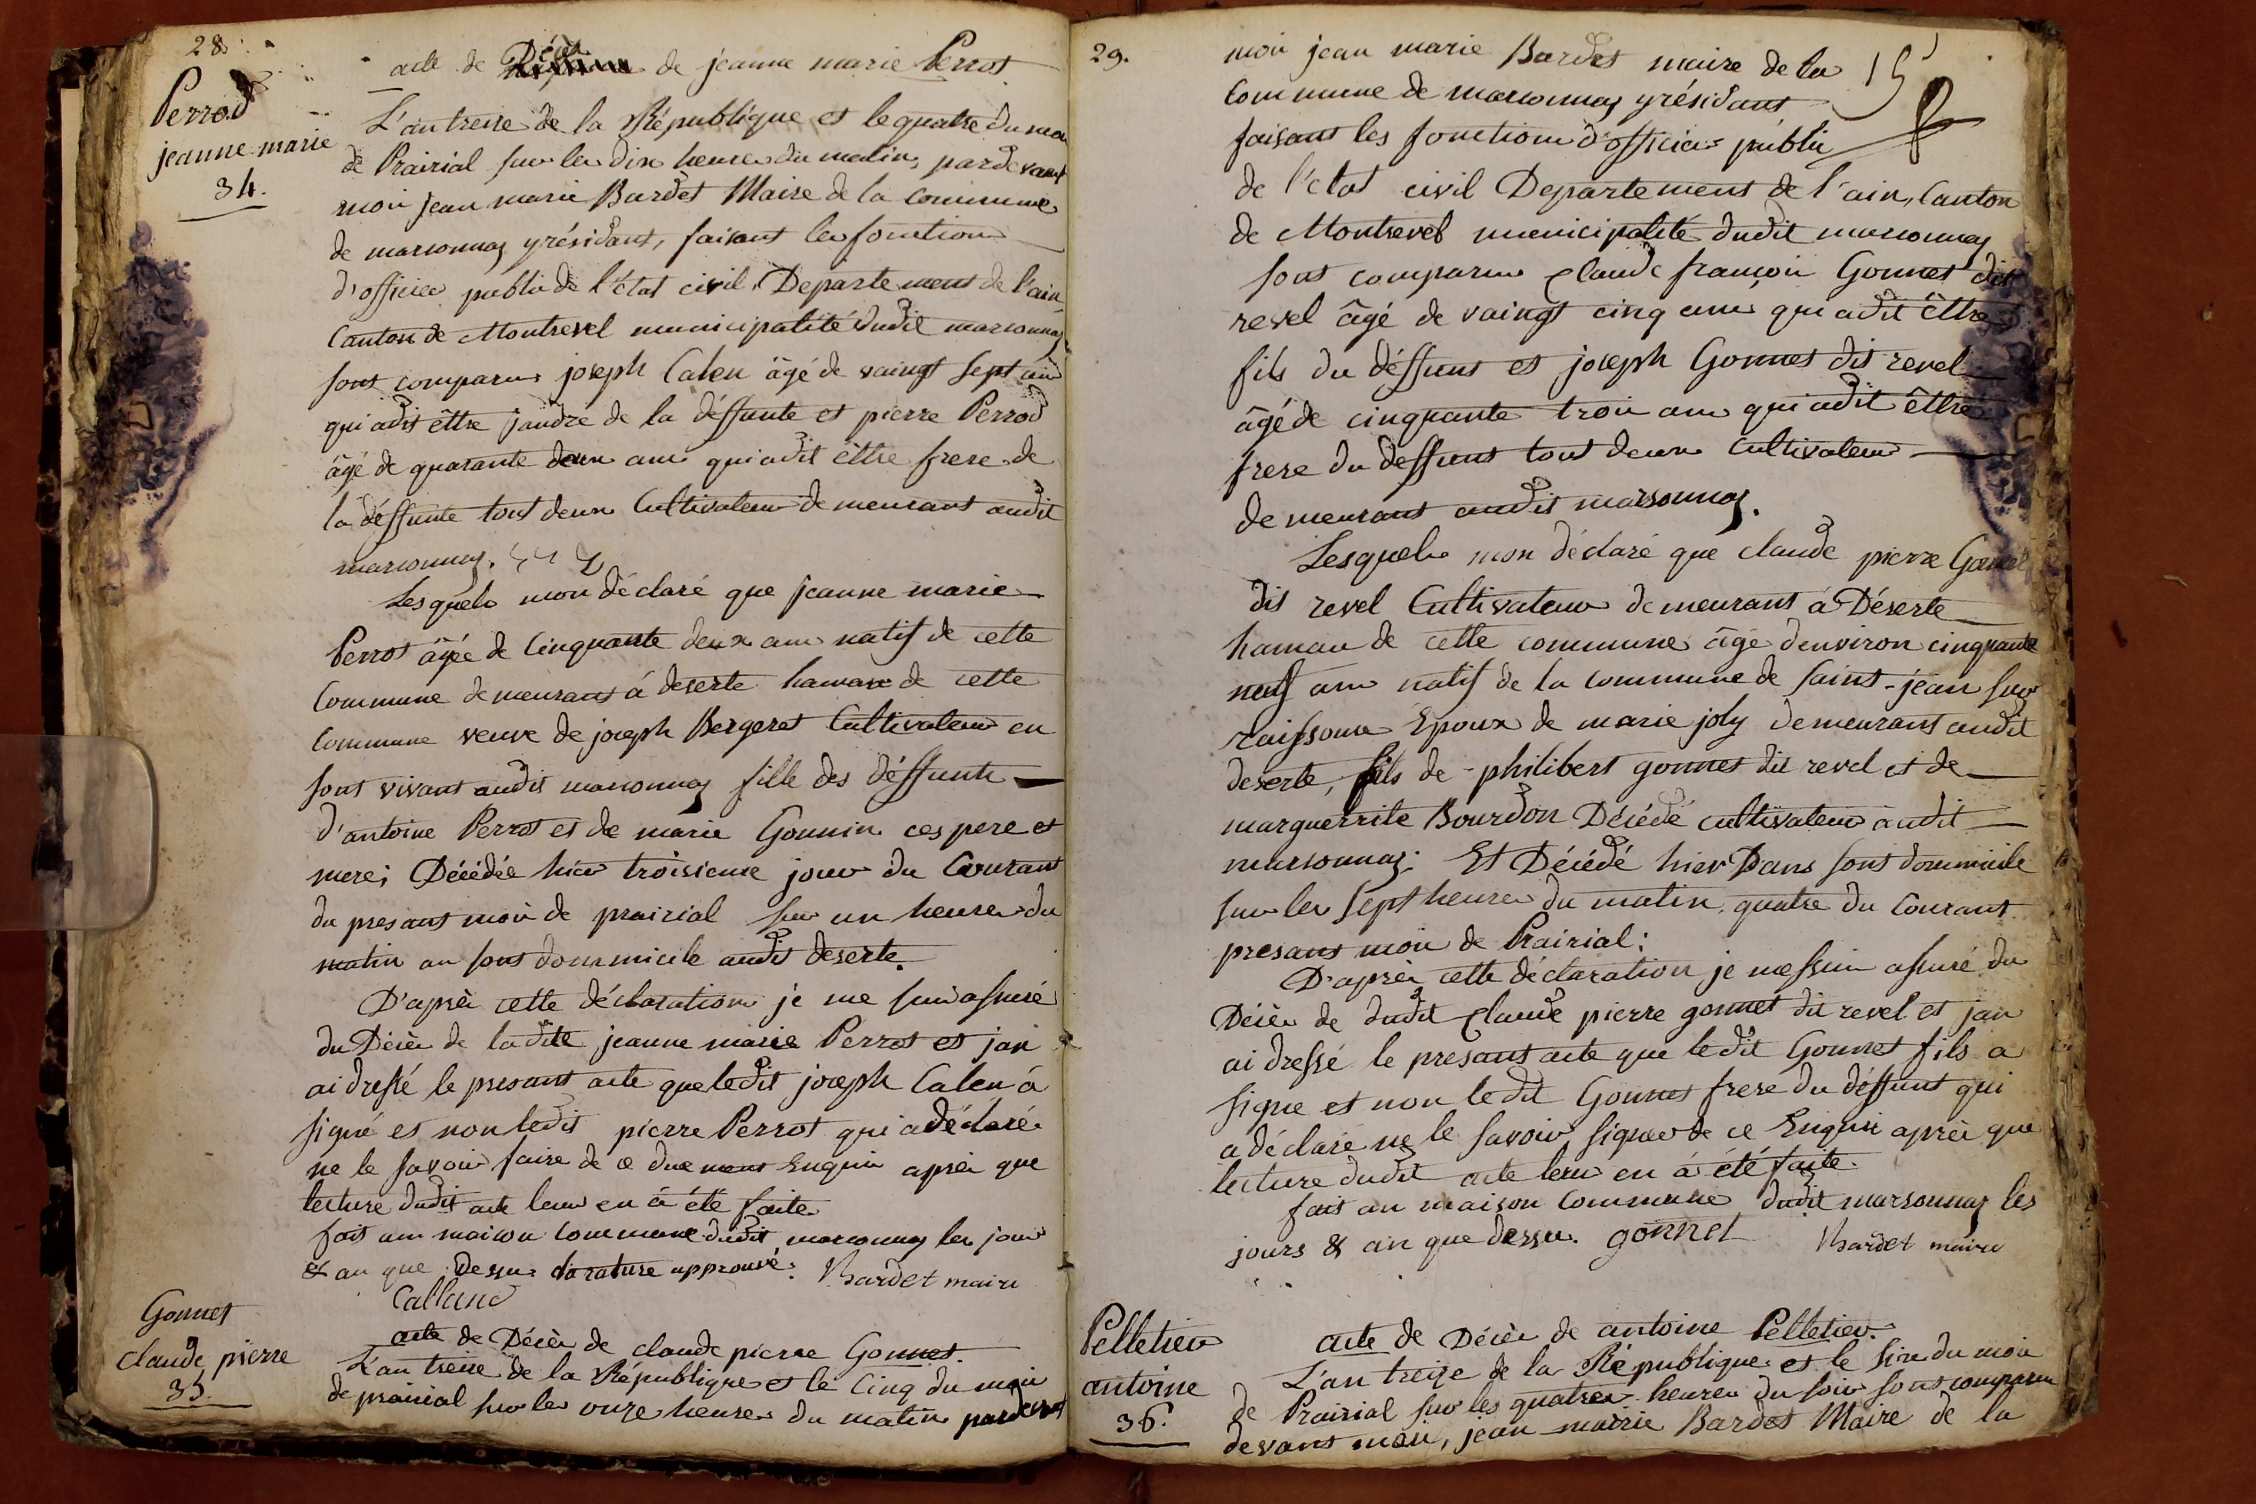 28.
acte de Décès de jeanne marie Perrot
Perrod
jeanne marie
34.
L'an treise de la République et le quatre du moi
de Prairial sur les dix heures du matin, pardevant
moi jean marie Bardet Maire de la commune
de marsonnas y résidant, faisant les fonctions
d'officier public de l'état civil Departement de l'ain
Canton de Montrevel municipalité dudit marsonnas
sont comparus joseph Calen âgé de vaingt sept ans
qui adit êttre jandre de la déffunte et pierre Perrod
âgé de quarante deux ans qui adit êttre frere de
la déffunte tout deux Cultivateur demeurant audit
marsonnas.
Lesquels mon déclaré que jeanne marie
Perrot âgée de Cinquante deux ans natif de cette
Commune demeurant á deserte hamau de cette
Commune veuve de joseph Bergeret Cultivateur en
sont vivant audit marsonnas fille des déffunts
d'antoine Perrot et de marie Gonnin ces pere et
mere; Décédée hier troisieme jour du Courant
du presant moi de prairial sur un heures du
matin au sont dommicile audit deserte.
D'après cette déclaration je me suis assuré
du Décès de ladite jeanne marie Perrot et jan
ai dressé le presant acte que ledit joseph Calen á
signé et non ledit pierre Perrot qui a déclaré
ne le savoir faire de ce duement Enquis après que
lecture dudit acte leur en á été faite
fait au maison commune dudit marsonnas les jour
& an que dessus la rature approuvé. Bardet maire
Calland
Gonnet
Claude pierre
35.
acte de Décès de claude pierre Gonnet.
L'an treise de la République et le Cinq du moi
de prairial sur les onze heures du matin pardevant
29.
moi jean marie Bardet maire de la
15
Commune de marsonnas y résidant
faisant les fonctions d'officier public
de l'état civil Departement de l'ain, Canton
de Montrevel municipalité dudit marsonnas
sont comparus claude françois Gonnet dit
revel âgé de vaingt cinq ans qui adit êttre
fils du déffunt et joseph Gonnet dit revel
âgé de cinquante trois ans qui adit êttre
frere du deffunt tout deux Cultivateur
demeurant audit marsonnas.
Lesquels mon déclaré que claude pierre Gonnet
dit revel Cultivateur demeurant á Déserte
hamau de cette commune âgé denviron cinquante
neuf ans natif de la commune de saint-jean sur
raissouse Epoux de marie joly demeurant audit
deserte, fils de philibert gonnet dit revel et de
marguerrite Bourdon Décédé cultivateur audit
marsonnas; Et Décédé hier Dans sont dommicile
sur les sept heures du matin, quatre du Courant
presant moi de Prairial:
D'après cette déclaration je messuis assuré du
Décès de dudit claude pierre gonnet dit revel et jan
ai dressé le presant acte que ledit Gonnet fils a
signe et non ledit Gonnet frere du déffunt qui
a déclaré ne le savoir signer de ce Enquis après que
lecture dudit acte leur en á été faite.
fait au maison commune dudit marsonnas les
jours & an que dessu. gonnet Bardet maire
Pelletier
antoine
36.
acte de Décès de antoine Pelletier.
L'an treize de la République et le six du moi
de Prairial sur les quatres heures du soir sont comparu
devant moi, jean marie Bardet Maire de la